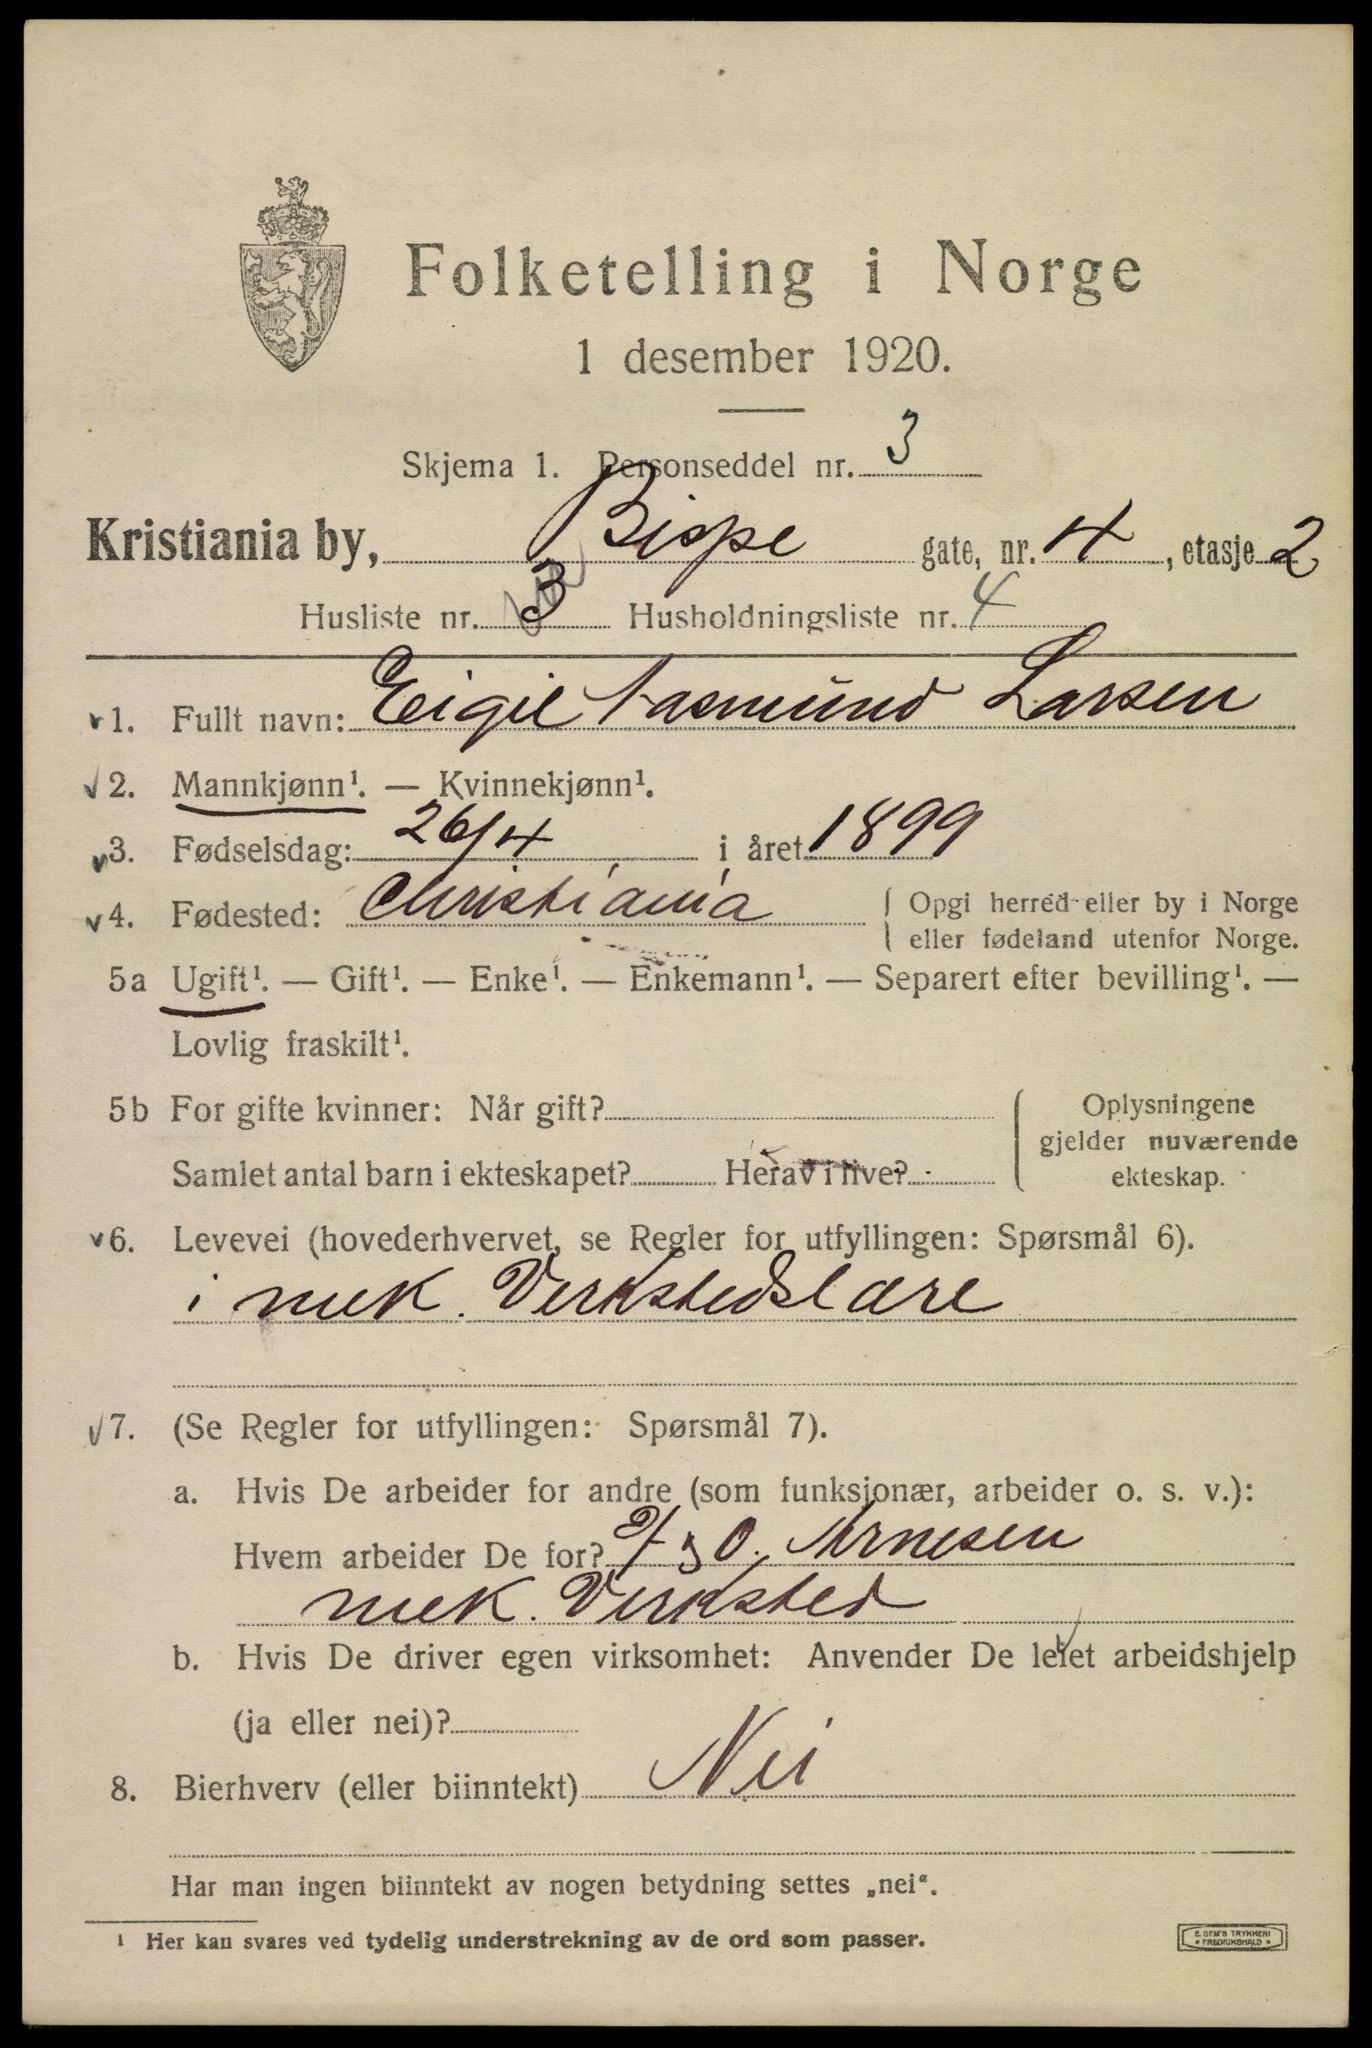 Folketelling i Norge
1 desember 1920.
Skjema 1. Personseddel nr. 3
Kristiania by, Bispe gate, nr. 4, etasje 2
Husliste nr. 3 Husholdningsliste nr. 4
1. Fullt navn: Eigil Aasmund Larsen
2. Mannkjønn¹. — Kvinnekjønn¹.
3. Fødselsdag: 26/4 i året 1899
4. Fødested: Christiania { Opgi herred eller by i Norge
eller fødeland utenfor Norge.
5a Ugift¹. — Gift¹. — Enke¹. — Enkemann¹. — Separert efter bevilling¹. —
Lovlig fraskilt¹.
5b For gifte kvinner: Når gift? { Oplysningene
gjelder nuværende
Samlet antal barn i ekteskapet? Herav i live? ekteskap.
6. Levevei (hovederhvervet, se Regler for utfyllingen: Spørsmål 6).
i mek. Verkstedslære
7. (Se Regler for utfyllingen: Spørsmål 7).
a. Hvis De arbeider for andre (som funksjonær, arbeider o. s. v.):
Hvem arbeider De for? O. Arnesen
mek. Verksted
b. Hvis De driver egen virksomhet: Anvender De leiet arbeidshjelp
(ja eller nei)?
8. Bierhverv (eller biinntekt) Nei
Har man ingen biinntekt av nogen betydning settes „nei“.
¹ Her kan svares ved tydelig understrekning av de ord som passer.
E. SEM'S TRYKKERI
* FREDRIKSHALD *